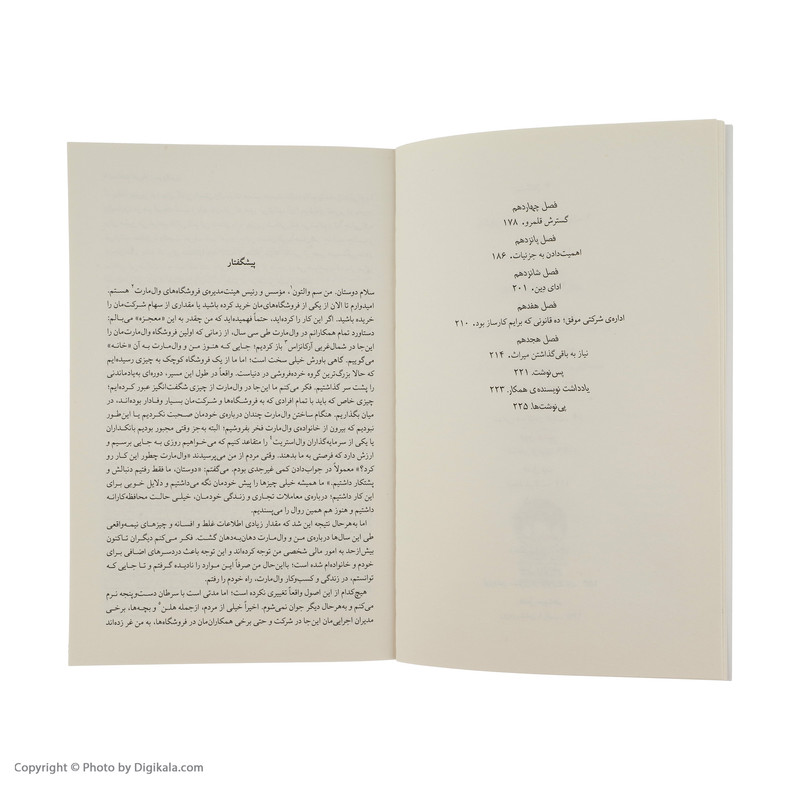 فصل چهاردهم
گسترش قلمرو. ۱۷۸
فصل پانزدهم
اهمیت‌دادن به جزئیات. ۱۸۶
فصل شانزدهم
ادای دین. ۲۰۱
فصل هفدهم
اداره‌ی شرکتی موفق؛ ده قانونی که برایم کارساز بود. ۲۱۰
فصل هجدهم
نیاز به باقی‌گذاشتن میراث. ۲۱۴
پس‌نوشت. ۲۲۱
یادداشت نویسنده‌ی همکار. ۲۲۳
پی‌نوشت‌ها. ۲۲۵
پیشگفتار
سلام دوستان. من سم والتون۱، مؤسس و رئیس هیئت‌مدیره‌ی فروشگاه‌های وال‌مارت۲ هستم.
امیدوارم تا الان از یکی از فروشگاه‌های‌مان خرید کرده باشید یا مقداری از سهام شرکت‌مان را
خریده باشید. اگر این کار را کرده‌اید، حتماً فهمیده‌اید که من چقدر به این «معجزه» می‌بالم:
دستاورد تمام همکارانم در وال‌مارت طی سی سال، از زمانی که اولین فروشگاه وال‌مارت‌مان را
این‌جا در شمال‌غربی آرکانزاس۳ باز کردیم؛ جایی که هنوز من و وال‌مارت به آن «خانه»
می‌گوییم. گاهی باورش خیلی سخت است؛ اما ما از یک فروشگاه کوچک به چیزی رسیده‌ایم
که حالا بزرگ‌ترین گروه خرده‌فروشی در دنیاست. واقعاً در طول این مسیر، دوره‌ای به‌یادماندنی
را پشت سر گذاشتیم. فکر می‌کنم ما این‌جا در وال‌مارت از چیزی شگفت‌انگیز عبور کرده‌ایم؛
چیزی خاص که باید با تمام افرادی که به فروشگاه‌ها و شرکت‌مان بسیار وفادار بوده‌اند، در
میان بگذاریم. هنگام ساختن وال‌مارت چندان درباره‌ی خودمان صحبت نکردیم یا این‌طور
نبودیم که بیرون از خانواده‌ی وال‌مارت فخر بفروشیم؛ البته به‌جز وقتی مجبور بودیم بانکداران
یا یکی از سرمایه‌گذاران وال‌استریت۴ را متقاعد کنیم که می‌خواهیم روزی به جایی برسیم و
ارزش دارد که فرصتی به ما بدهند. وقتی مردم از من می‌پرسیدند «وال‌مارت چطور این کار رو
کرد؟» معمولاً در جواب‌دادن کمی غیرجدی بودم. می‌گفتم: «دوستان، ما فقط رفتیم دنبالش و
پشتکار داشتیم.» ما همیشه خیلی چیزها را پیش خودمان نگه می‌داشتیم و دلایل خوبی برای
این کار داشتیم؛ درباره‌ی معاملات تجاری و زندگی خودمان، خیلی حالت محافظه‌کارانه
داشتیم و هنوز هم همین روال را می‌پسندیم.
اما به‌هرحال نتیجه این شد که مقدار زیادی اطلاعات غلط و افسانه و چیزهای نیمه‌واقعی
طی این سال‌ها درباره‌ی من و وال‌مارت دهان‌به‌دهان گشت. فکر می‌کنم دیگران تاکنون
بیش‌ازحد به امور مالی شخصی من توجه کرده‌اند و این توجه باعث دردسرهای اضافی برای
خودم و خانواده‌ام شده است؛ بااین‌حال من صرفاً این موارد را نادیده گرفتم و تا جایی که
توانستم، در زندگی و کسب‌وکار وال‌مارت، راه خودم را رفتم.
هیچ‌کدام از این اصول واقعاً تغییری نکرده است؛ اما مدتی است با سرطان دست‌وپنجه نرم
می‌کنم و به‌هرحال دیگر جوان نمی‌شوم. اخیراً خیلی از مردم، ازجمله هلن۵ و بچه‌ها، برخی
مدیران اجرایی‌مان این‌جا در شرکت و حتی برخی همکاران‌مان در فروشگاه‌ها، به من غر زده‌اند
Copyright © Photo by Digikala.com